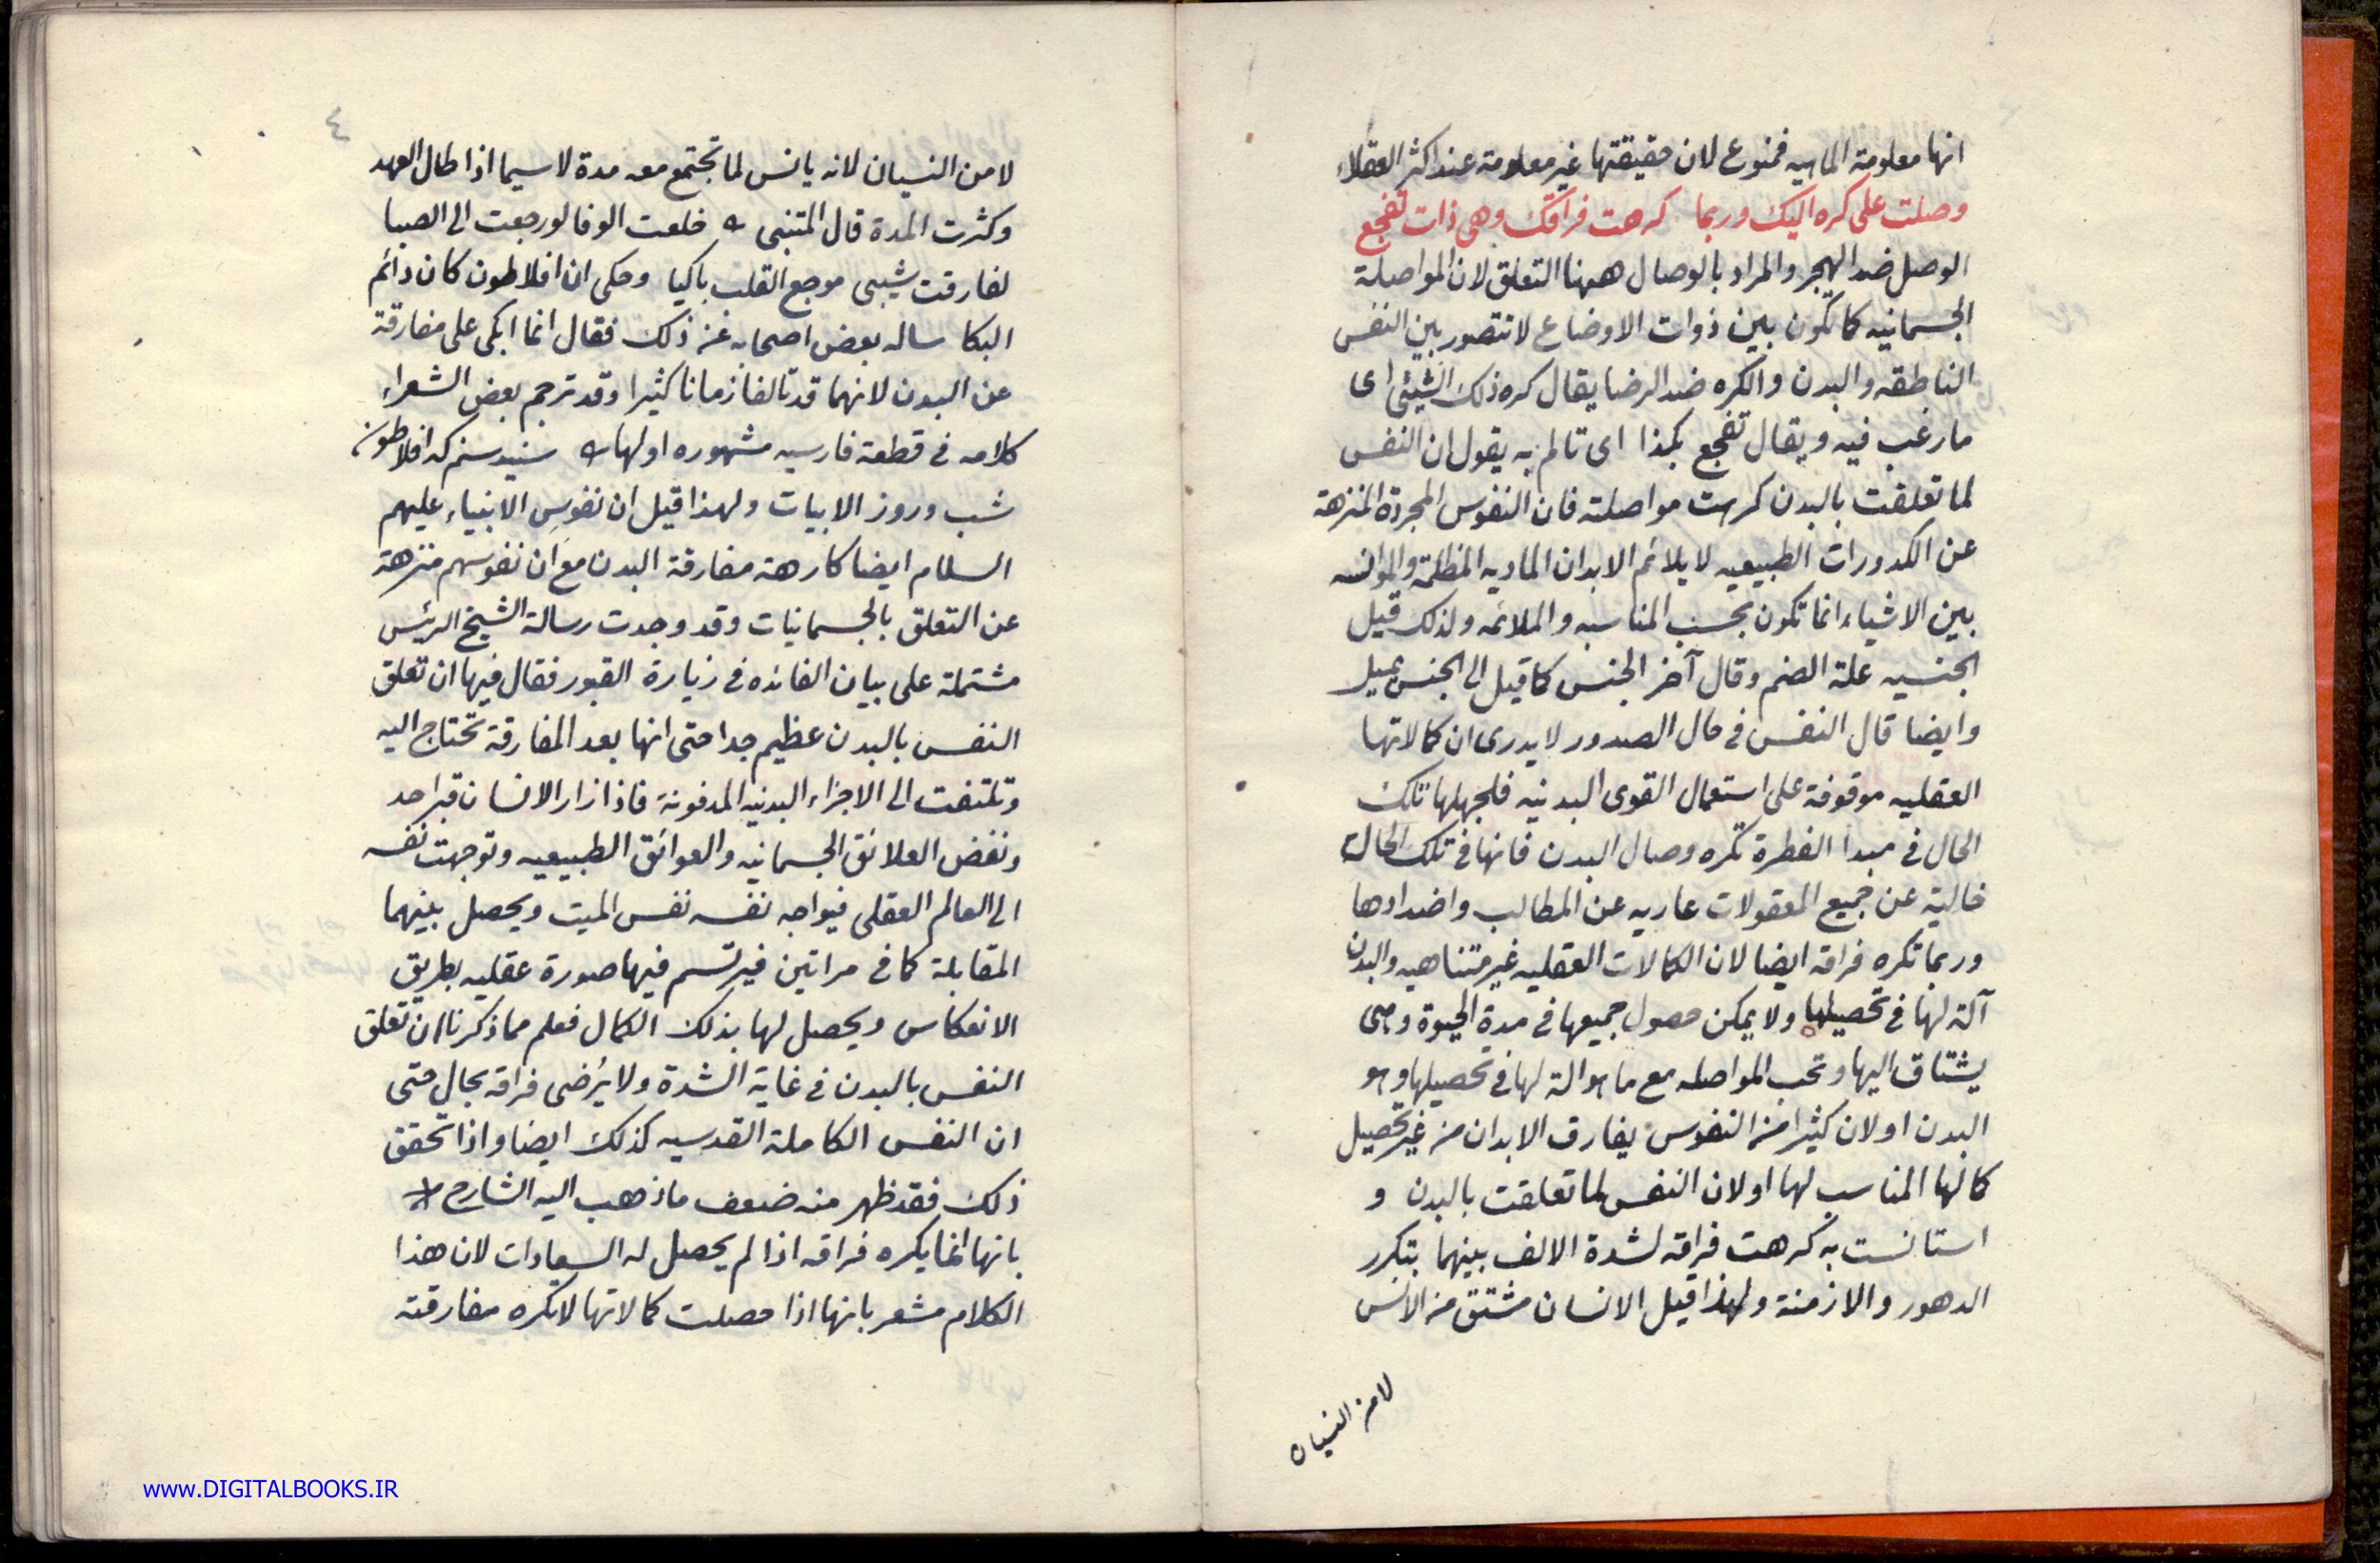 انها معلومة الماهيه فممنوع لان حقيقتها غير معلومة عند اكثر العقلاء
وصلت على كره اليك وربما كرهت فراقك وهى ذات تفجع
الوصل ضد الهجر والمراد بالوصال ههنا التعلق لان المواصلة
الجسمانيه كما تكون بين ذوات الاوضاع لا تتصور بين النفس
الناطقه والبدن والكره ضد الرضا يقال كره ذلك الشيئى اى
ما رغب فيه ويقال تفجع بكذا اى تالم به يقول ان النفس
لما تعلقت بالبدن كرهت مواصلته فان النفوس المجردة المنزهة
عن الكدورات الطبيعيه لا يلائم الابدان الماديه المظلمة والموانسه
بين الاشياء انما تكون بحسب المناسبه والملائمه ولذلك قيل
الجنسيه علة الضم وقال آخر الجنس كما قيل الى الجنس يميل
وايضا قال النفس فى حال الصدور لا يدرى ان كمالاتها
العقليه موقوفة على استعمال القوى البدنيه فلجهلها تلك
الحال فى مبدا الفطرة تكره وصال البدن فانها فى تلك الحالة
خالية عن جميع المعقولات عاريه عن المطالب واضدادها
وربما تكره فراقه ايضا لان الكمالات العقليه غير متناهيه والبدن
آلة لها فى تحصيلها ولا يمكن حصول جميعها فى مدة الحيوة وهى
يشتاق اليها وتحب المواصله مع ما هو الة لها فى تحصيلها وهو
البدن او لان كثيرا من النفوس يفارق الابدان من غير تحصيل
كمالها المناسب لها او لان النفس لما تعلقت بالبدن و
استانست به كرهت فراقه لشدة الالف بينهما بتكرر
الدهور والازمنة ولهذا قيل الانسان مشتق من الانس
لا من النسيان
٤
لا من النسيان لانه يانس لما تجتمع معه مدة لا سيما اذا طال العهد
وكثرت المدة قال المتنبى خلعت الوفا لو رجعت الى الصبا
لفارقت شيبى موجع القلب باكيا وحكى ان افلاطون كان دائم
البكا ساله بعض اصحابه عن ذلك فقال انما ابكى على مفارقة
عن البدن لانهما قد تالفا زمانا كثيرا وقد ترجم بعض الشعراء
كلامه فى قطعة فارسيه مشهوره اولها شنيدستم كه افلاطون
شب وروز الابيات ولهذا قيل ان نفوس الانبياء عليهم
السلام ايضا كارهة مفارقة البدن مع ان نفوسهم منزهة
عن التعلق بالجسمانيات وقد وجدت رسالة الشيخ الرئيس
مشتملة على بيان الفائده فى زيارة القبور فقال فيها ان تعلق
النفس بالبدن عظيم جدا حتى انها بعد المفارقة تحتاج اليه
وتلتفت الى الاجزاء البدنيه المدفونة فاذا زار الانسان قبر احد
ونفض العلائق الجسمانيه والعوائق الطبيعيه وتوجهت نفسه
الى العالم العقلى فيواجه نفسه نفس الميت ويحصل بينهما
المقابلة كما فى مراتين فيرتسم فيها صورة عقليه بطريق
الانعكاس ويحصل لها بذلك الكمال فعلم مما ذكرنا ان تعلق
النفس بالبدن فى غاية الشدة ولا يرضى فراقه بحال حتى
ان النفس الكاملة القدسيه كذلك ايضا واذا تحقق
ذلك فقد ظهر منه ضعف ما ذهب اليه الشارح
بانها انما يكره فراقه اذا لم يحصل له السعادات لان هذا
الكلام مشعر بانها اذا حصلت كمالاتها لا تكره مفارقته
www.DIGITALBOOKS.IR